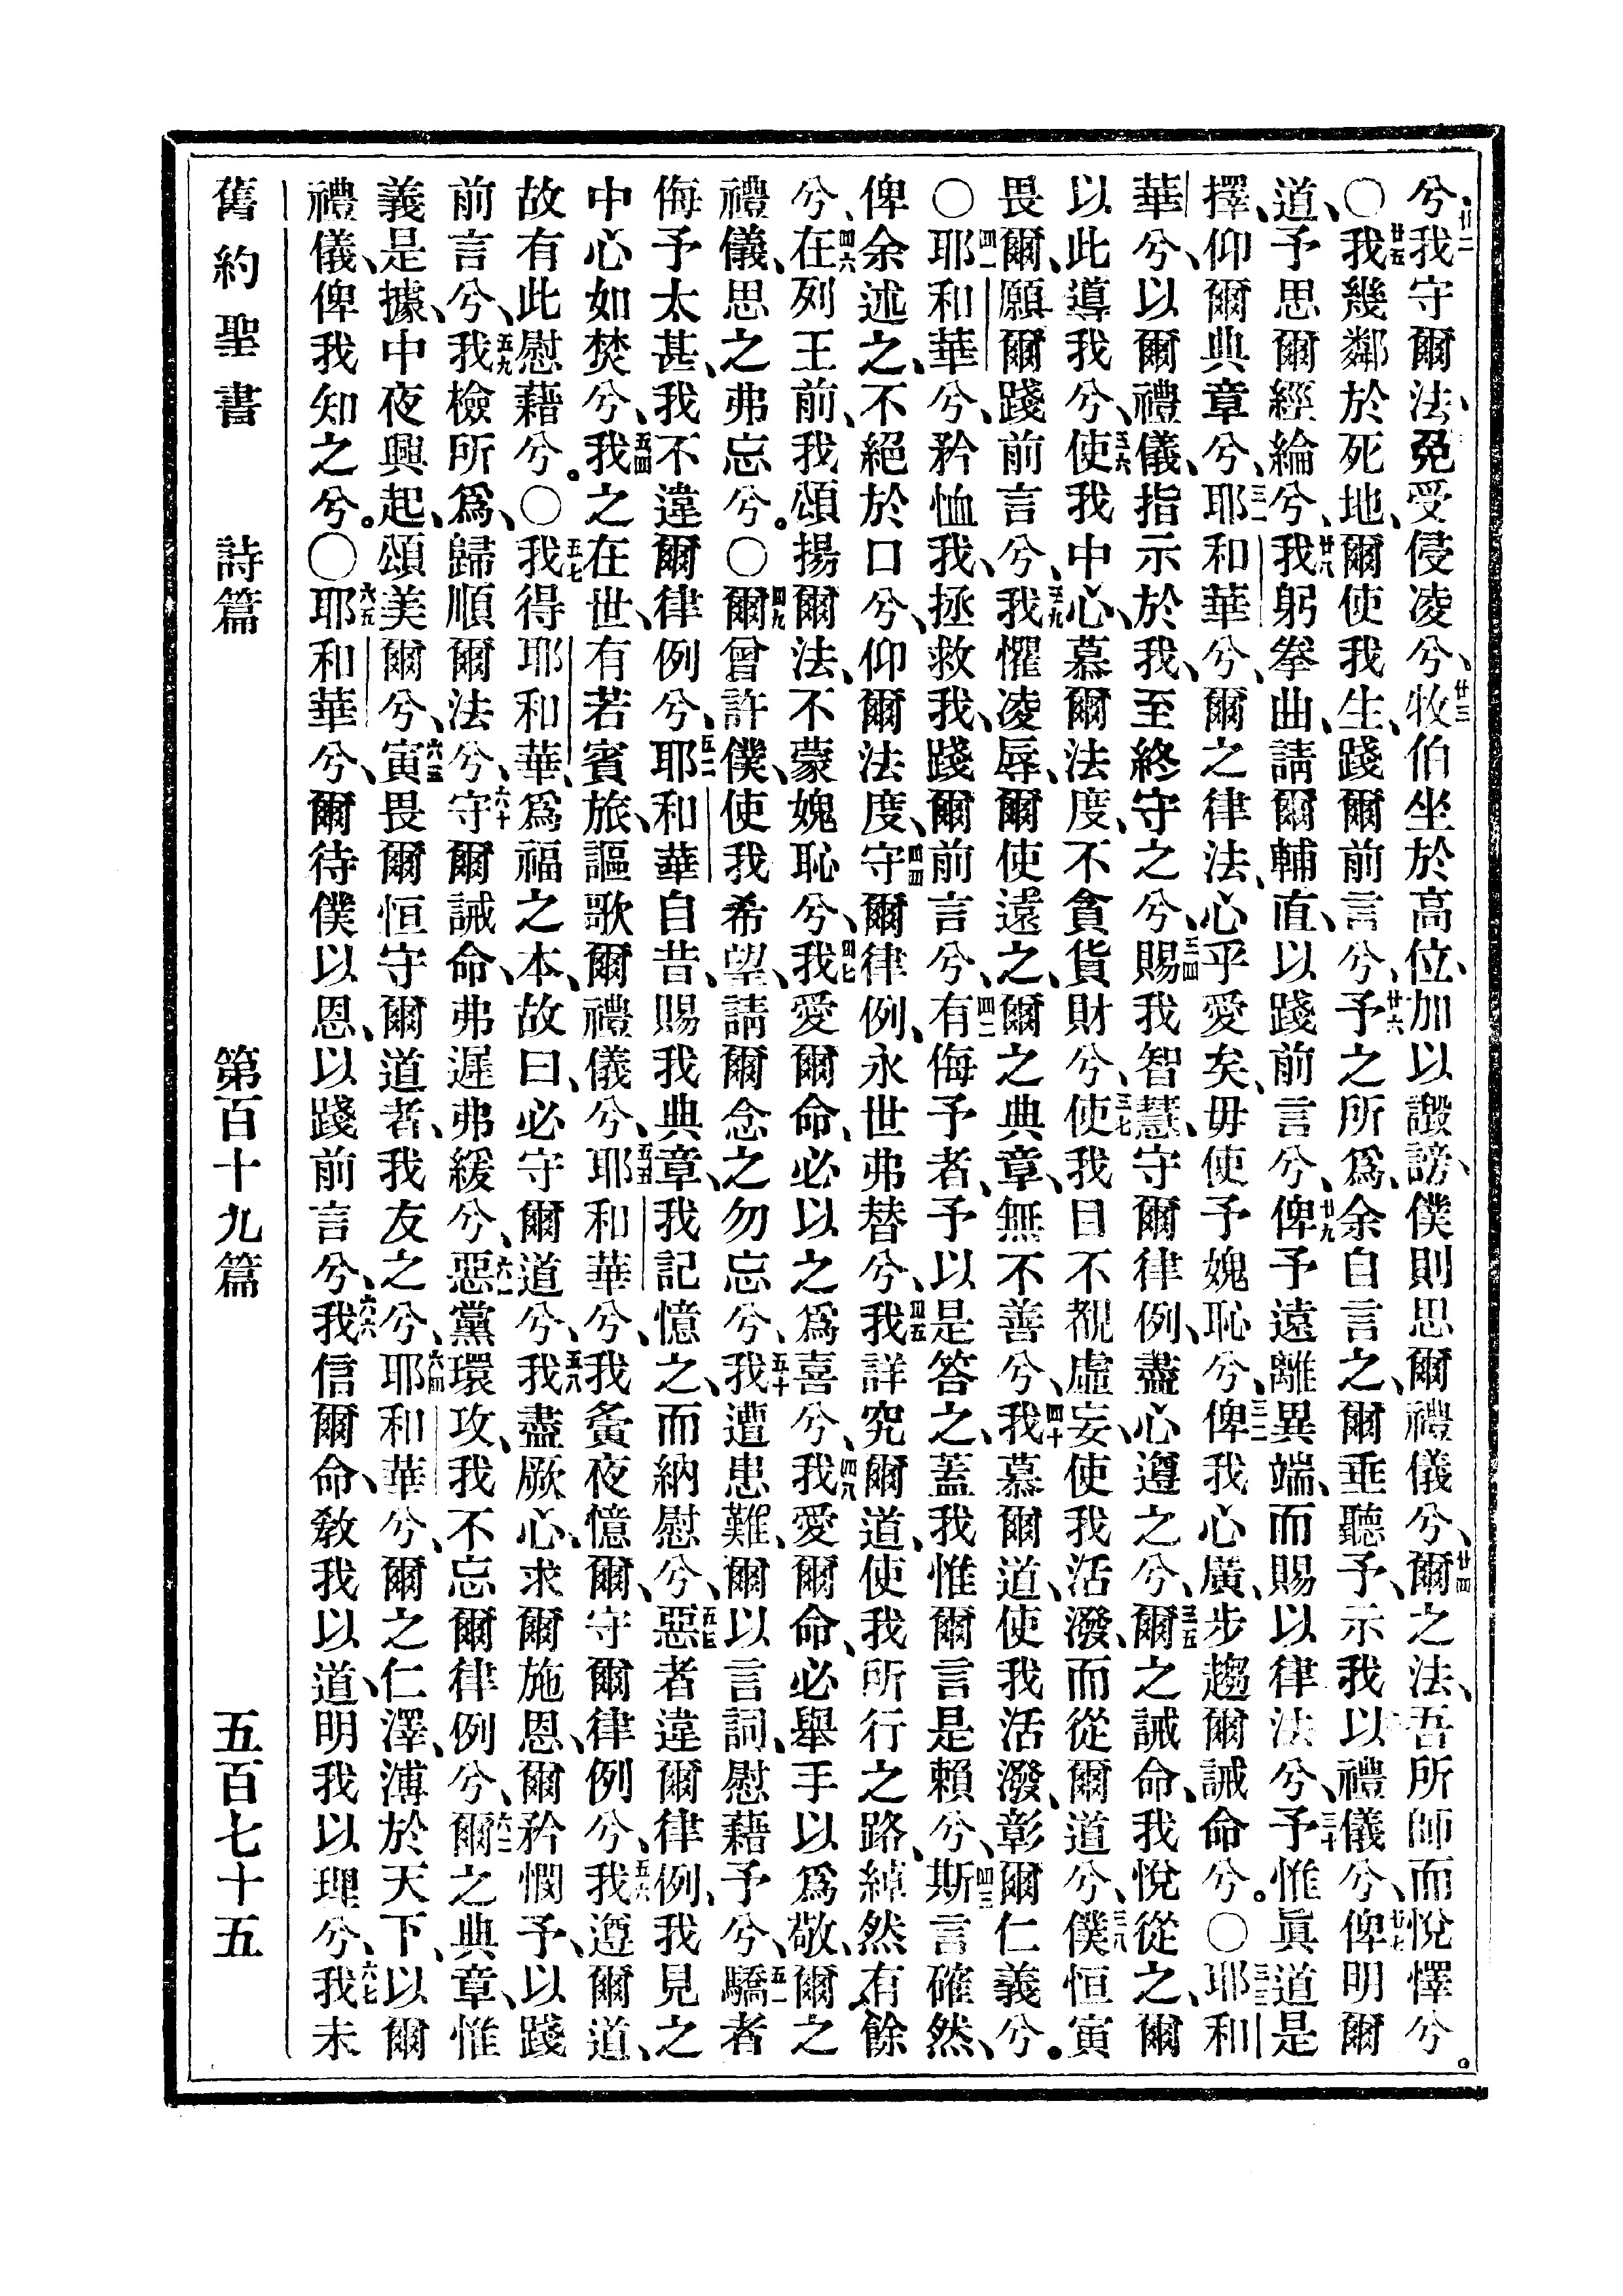 兮、廿二我守爾法、免受侵凌兮、廿三牧伯坐於高位、加以譭謗、僕則思爾禮儀兮、廿四爾之法、吾所師而悅懌兮。
〇廿五我幾鄰於死地、爾使我生、踐爾前言兮、廿六予之所爲、余自言之、爾垂聽予、示我以禮儀兮、廿七俾明爾
道、予思爾經綸兮、廿八我躬拳曲、請爾輔直、以踐前言兮、廿九俾予遠離異端、而賜以律法兮、三十予惟眞道是
擇、仰爾典章兮、三一耶和華兮、爾之律法、心乎愛矣、毋使予媿恥兮、三二俾我心廣、步趨爾誡命兮。〇三三耶和
華兮、以爾禮儀、指示於我、至終守之兮、三四賜我智慧、守爾律例、盡心遵之兮、三五爾之誡命、我悅從之、爾
以此導我兮、三六使我中心、慕爾法度、不貪貨財兮、三七使我目不覩虛妄、使我活潑、而從爾道兮、三八僕恒寅
畏爾、願爾踐前言兮、三九我懼凌辱、爾使遠之、爾之典章、無不善兮、四十我慕爾道、使我活潑、彰爾仁義兮。
〇四一耶和華兮、矜恤我、拯救我、踐爾前言兮、四二有侮予者、予以是答之、蓋我惟爾言是賴兮、四三斯言確然、
俾余述之、不絕於口兮、仰爾法度、四四守爾律例、永世弗替兮、四五我詳究爾道、使我所行之路、綽然有餘
兮、四六在列王前、我頌揚爾法、不蒙媿恥兮、四七我愛爾命、必以之爲喜兮、四八我愛爾命、必舉手以爲敬、爾之
禮儀、思之弗忘兮。〇四九爾曾許僕、使我希望、請爾念之勿忘兮、五十我遭患難、爾以言詞、慰藉予兮、五一驕者
侮予太甚、我不違爾律例兮、五二耶和華自昔賜我典章、我記憶之、而納慰兮、五三惡者違爾律例、我見之
中心如焚兮、五四我之在世、有若賓旅、謳歌爾禮儀兮、五五耶和華兮、我夤夜憶爾、守爾律例兮、五六我遵爾道、
故有此慰藉兮。〇五七我得耶和華、爲福之本、故曰、必守爾道兮、五八我盡厥心、求爾施恩、爾矜憫予、以踐
前言兮、五九我檢所爲、歸順爾法兮、六十守爾誡命、弗遲弗緩兮、六一惡黨環攻、我不忘爾律例兮、六二爾之典章、惟
義是據、中夜興起、頌美爾兮、六三寅畏爾恒守爾道者、我友之兮、六四耶和華兮、爾之仁澤、溥於天下、以爾
禮儀、俾我知之兮。〇六五耶和華兮、爾待僕以恩、以踐前言兮、六六我信爾命、敎我以道、明我以理兮、六七我未
舊約聖書 詩篇 第百十九篇 五百七十五